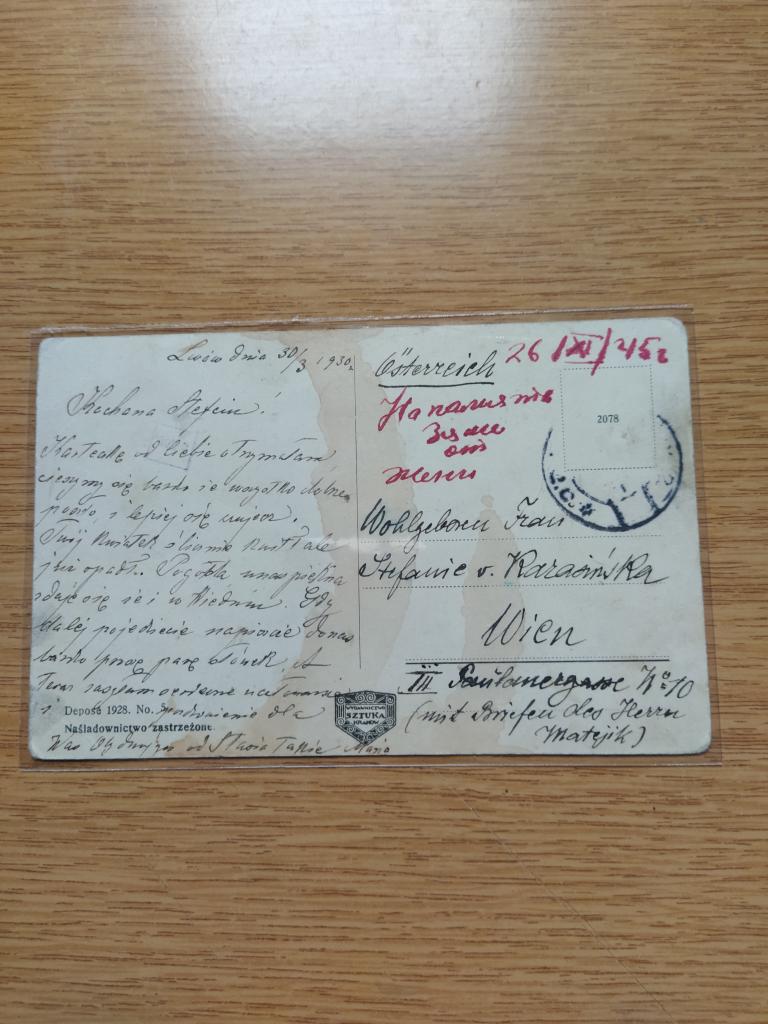 Lwów dnia 30/3 1930 r.
Kochana Stefciu!
Karteczkę od Ciebie otrzymałam
cieszymy się bardzo że wszystko dobrze
poszło i lepiej się czujesz.
Twój kwiatek ślicznie kwitł ale
już opadł. Pogoda u nas piękna
zdaje się że i w Wiedniu. Gdy
dalej pojedziecie napisać do nas
bardzo proszę parę słówek, A
teraz zasyłam serdeczne ucałowania
i pozdrowienie dla
Was Obydwojga od Stasia także Mania
Deposé 1928. No.
Naśladownictwo zastrzeżone.
WYDAWNICTWO
SZTUKA
KRAKÓW
Österreich
26/XI/45 г
2078
Wohlgeboren Frau
Stefanie v. Karasińska
Wien
III Paulanergasse No 10
(mit Briefen des Herrn
Matejik)